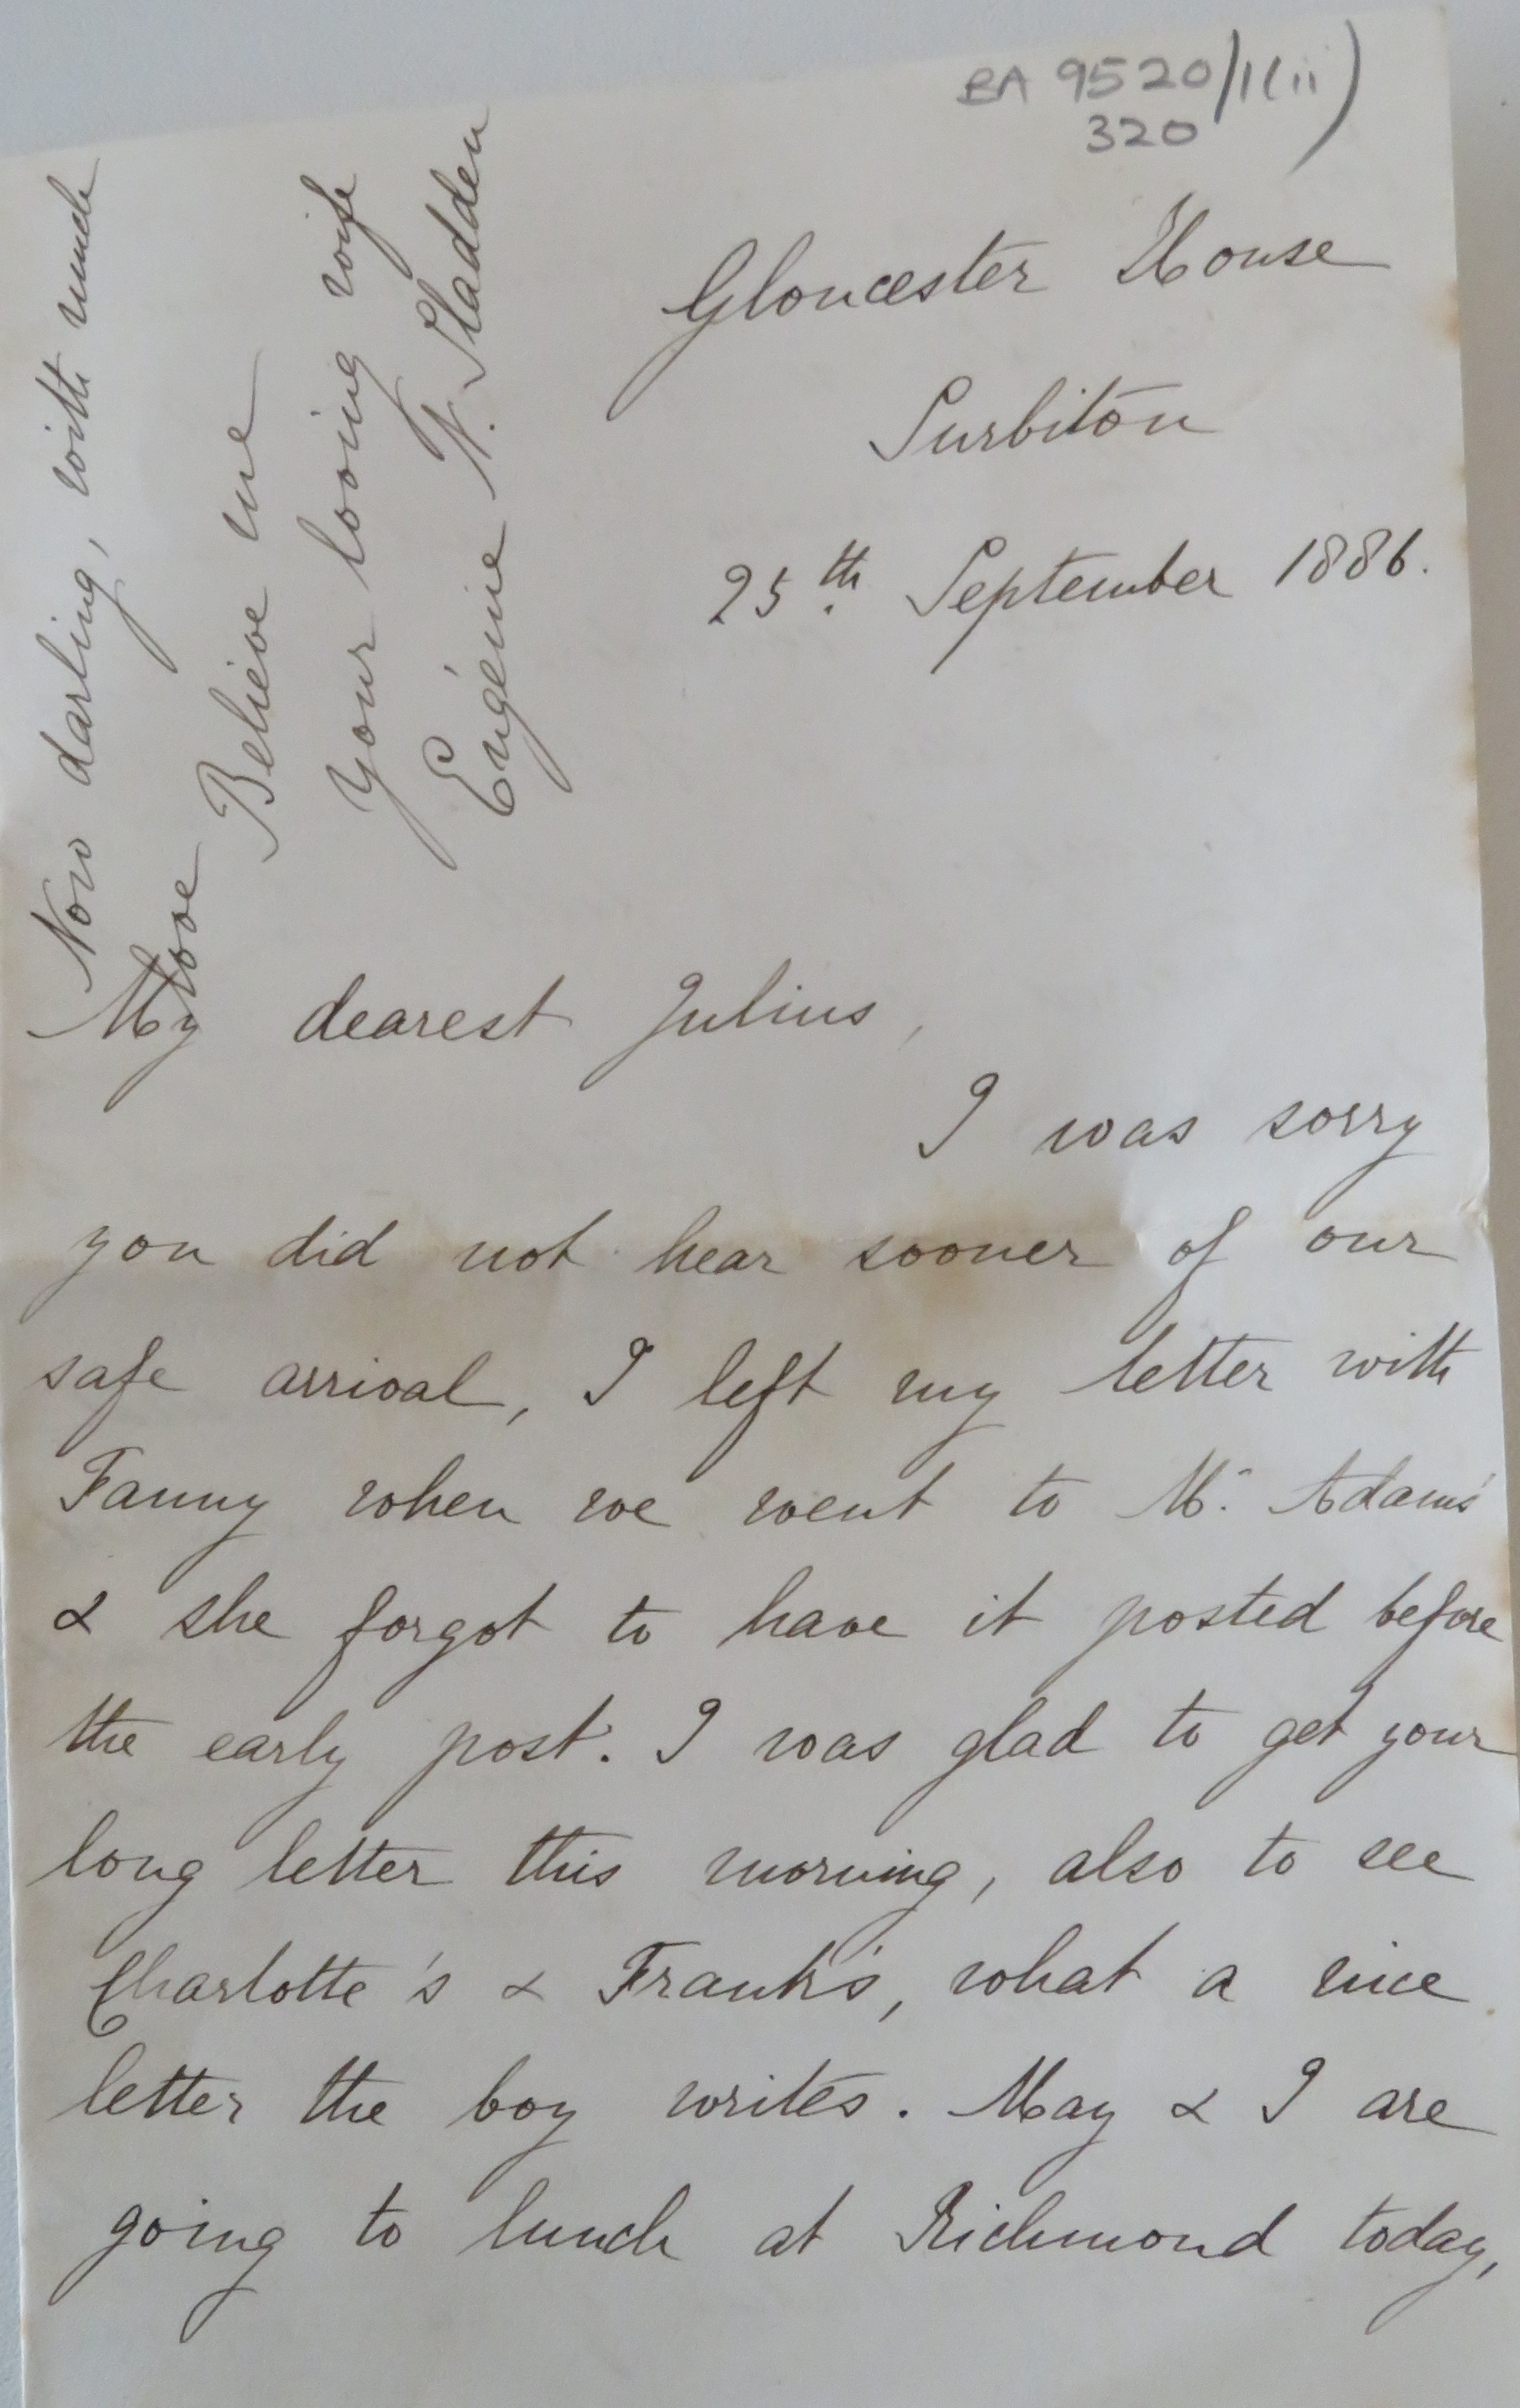 BA 9520/1(ii)
320
Gloucester House
Surbiton
25th September 1886.
My dearest Julius,
I was sorry
you did not hear sooner of our
safe arrival, I left my letter with
Fanny when we went to Mr. Adams'
& she forgot to have it posted before
the early post. I was glad to get your
long letter this morning, also to see
Charlotte's & Frank's, what a nice
letter the boy writes. May & I are
going to lunch at Richmond today,
Now darling, with much
love
Believe me
Your loving wife
Eugénie N. Sladden